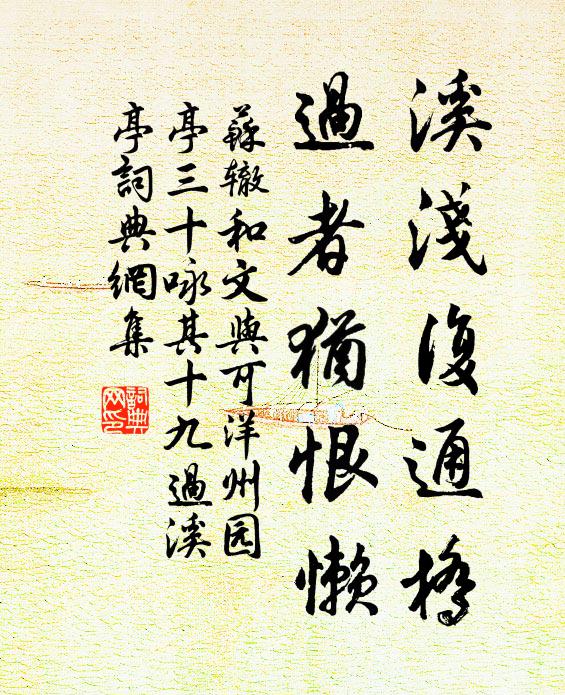 溪淺復通橋
過者猶恨懶
蘇轍和文與可洋州园
亭三十咏其十九過溪
亭詞典網集
詞典
网印